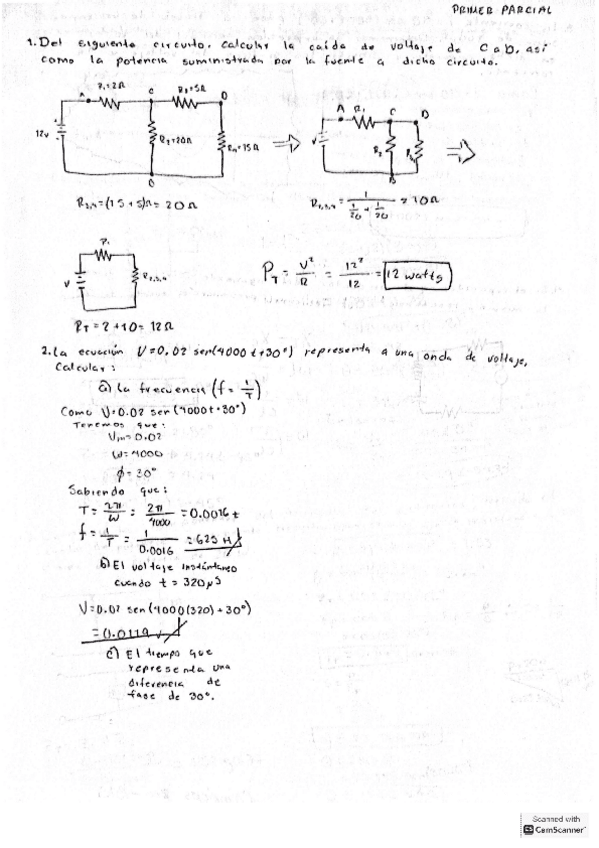 PRIMER PARCIAL
1. Del siguiente circuito. calcular la caída de voltaje de C a D, así
como la potencia suministrada por la fuente a dicho circuito.
A R₁=2Ω C R₃=5Ω D
12v R₂=20Ω R₄=15Ω
C
A R₁ C D
V R₂ R₃,₄
B
R₃,₄=(15+5)Ω= 20Ω
R₂,₃,₄ = 1/(1/20 + 1/20) = 10Ω
R₁
V R₂,₃,₄
P_T = V²/R = 12²/12 = 12 watts
R_T = 2+10= 12Ω
2. La ecuación V=0.02 sen(4000t+30°) representa a una onda de voltaje,
Calcular:
a) La frecuencia (f = 1/T)
Como V=0.02 sen(4000t+30°)
Tenemos que:
Vm=0.02
ω=4000
ϕ=30°
Sabiendo que:
T = 2π/ω = 2π/4000 = 0.0016 t
f = 1/T = 1/0.0016 = 625 H
b) El voltaje instántaneo
cuando t = 320μs
V=0.02 sen(4000(320)+30°)
=0.0119 v
c) El tiempo que
representa una
diferencia de
fase de 30°.
Scanned with
CS CamScanner